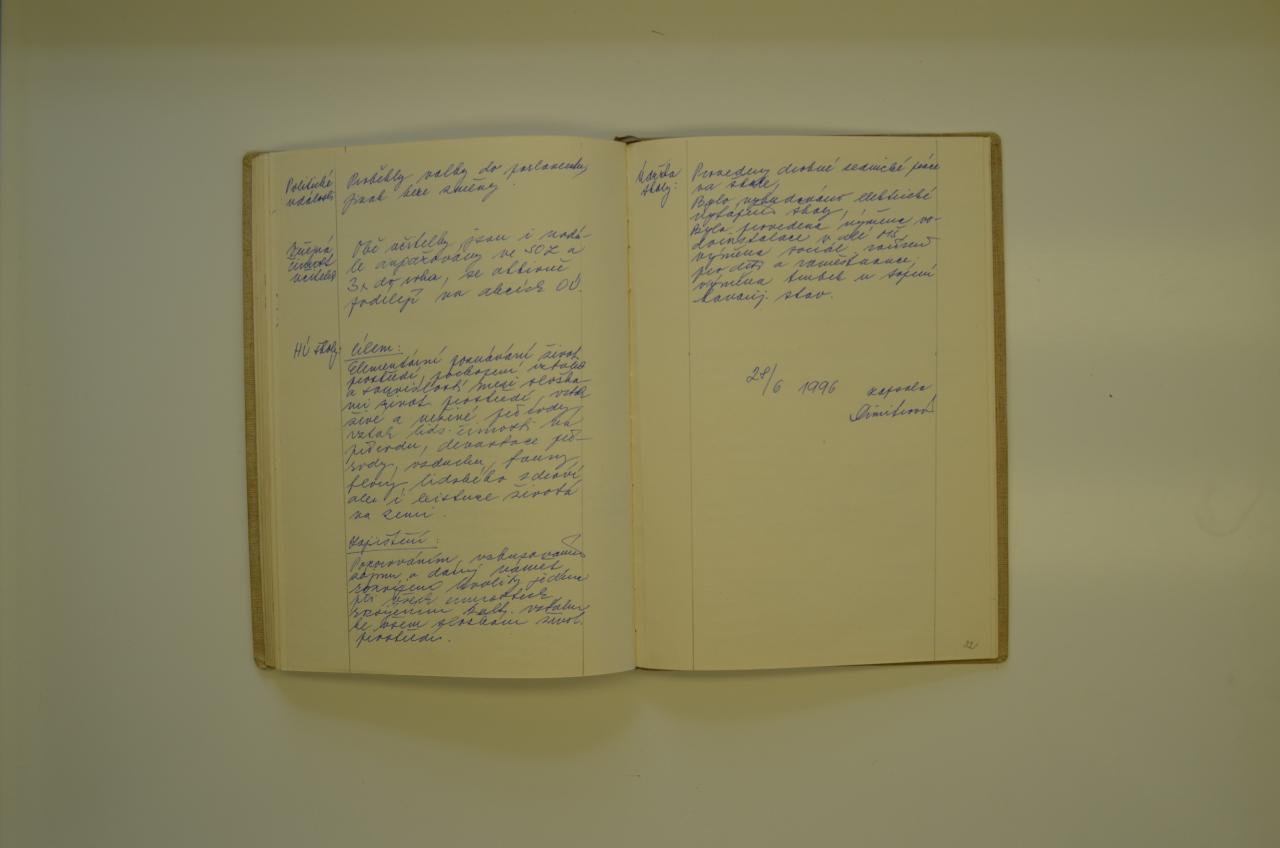 Politické
události
Proběhly volby do parlamentu,
jinak beze změny.
činnost
učitelek
Obě učitelky jsou i nadá-
le angažovány ve SDZ a
3x do roka, se aktivně
podílejí na akcích OÚ.
HÚ školy:
Cílem:
Elementární poznávání život.
prostředí, pochopení vztahů
a souvislostí mezi složka-
mi život. prostředí, vztah
živé a neživé přírody,
vztah lids. činnosti na
přírodu, devastace pří-
rody, vzduchu, fauny,
flory, lidského zdraví
ale i existence života
na zemi.
Zajištění:
Pozorováním, vzbuzováním
zájmu o daný námět
při všech činnostech
ke všem složkám život.
prostředí.
Údržba
školy:
Provedeny drobné zednické práce
na škole,
Bylo vybudováno elektrické
vytápění školy,
Byla provedena výměna vo-
doinstalace v celé MŠ
výměna sociál. zařízení
pro děti a zaměstnance,
výměna trubek u topení
havarij. stav.
28/6 1996 zapsala
Dimitrová
22